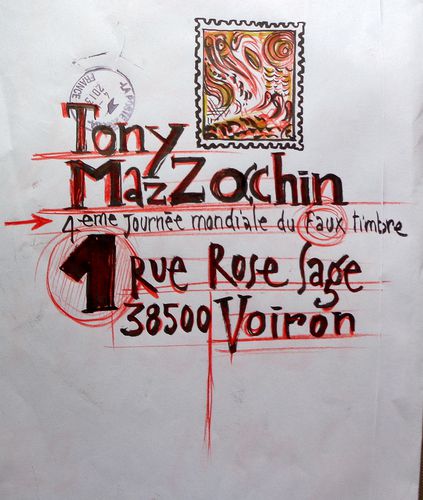 FRANCE
2013
Tony
MazZochin
4eme Journée mondiale du faux timbre
1 Rue Rose Sage
38500 Voiron